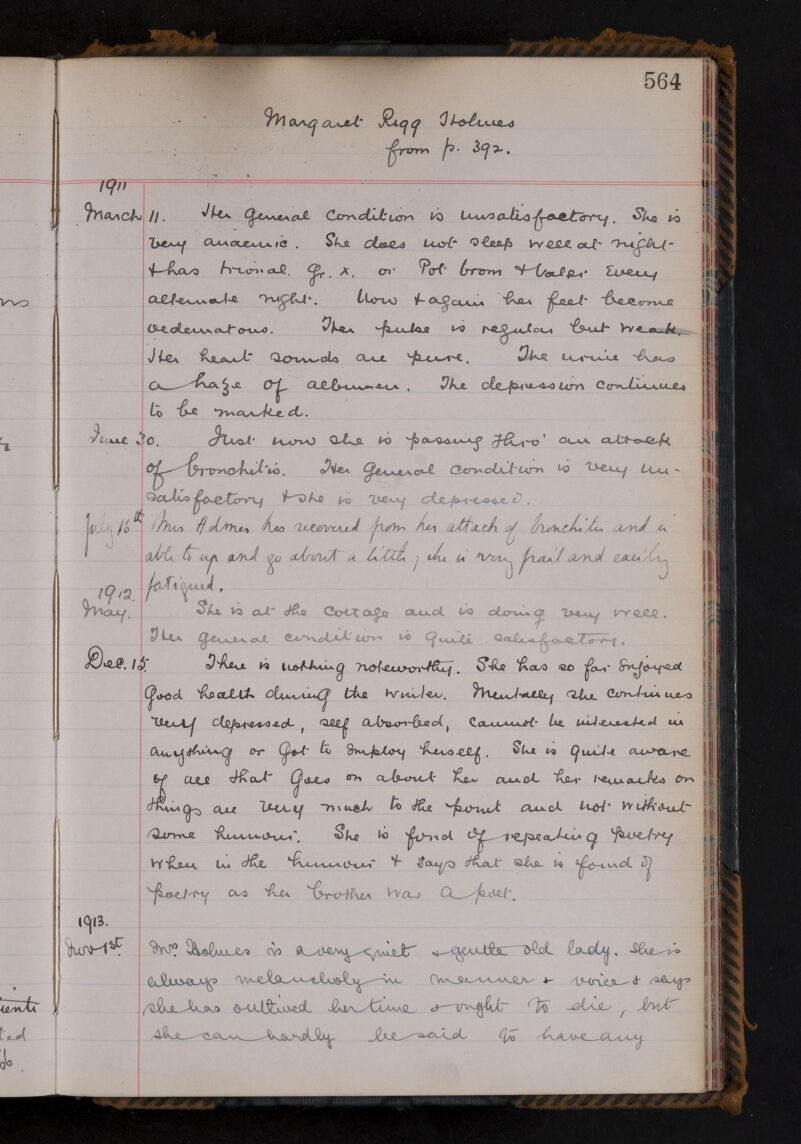 564
Margaret Rigg Holmes
from p. 392.
1911
March 11. Her general condition is unsatisfactory. She is
very anaemic. She does not sleep well at night
& has trional. gr. x. or Pot brom & Valer every
alternate night. Now & again her feet become
oedematous. Her pulse is regular but weak.
Her heart sounds are pure. The urine has
a haze of albumen. The depression continues
to be marked.
June 30. Just now she is passing thro' an attack
of bronchitis. Her general condition is very un-
satisfactory & she is very depressed.
July 16th Mrs Holmes has recovered from her attack of bronchitis and is
able to up and go about a little; she is very frail and easily
fatigued.
1912.
May. She is at the Cottage and is doing very well.
Her general condition is quite satisfactory.
Dec. 15. There is nothing noteworthy. She has so far enjoyed
good health during the winter. Mentally she continues
very depressed, self absorbed, cannot be interested in
anything or got to employ herself. She is quite aware
of all that goes on about her and her remarks on
things are very much to the point and not without
some humour. She is fond of repeating poetry
when in the humour & says that she is found of
poetry as her brother was a poet.
1913.
Nov 1st. Mrs Holmes is a very quiet & gentle old lady. She is
always melancholy in manner & voice & says
she has outlived her time & ought to die, but
she can hardly be said to have any
ients
ted